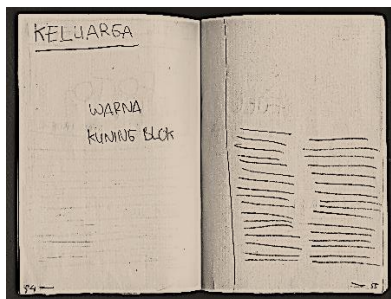 KELUARGA
WARNA
KUNING BLOK
54
55